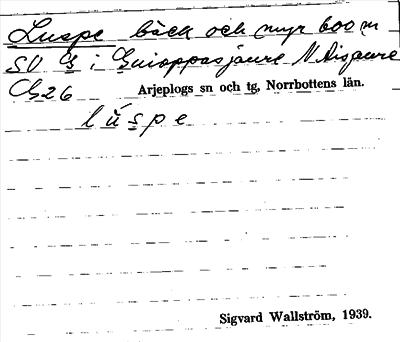 Luspe bäck och myr 600 m
SV G i Guioppasjaure N Aisjaure
G26
Arjeplogs sn och tg, Norrbottens län.
lúspe
Sigvard Wallström, 1939.